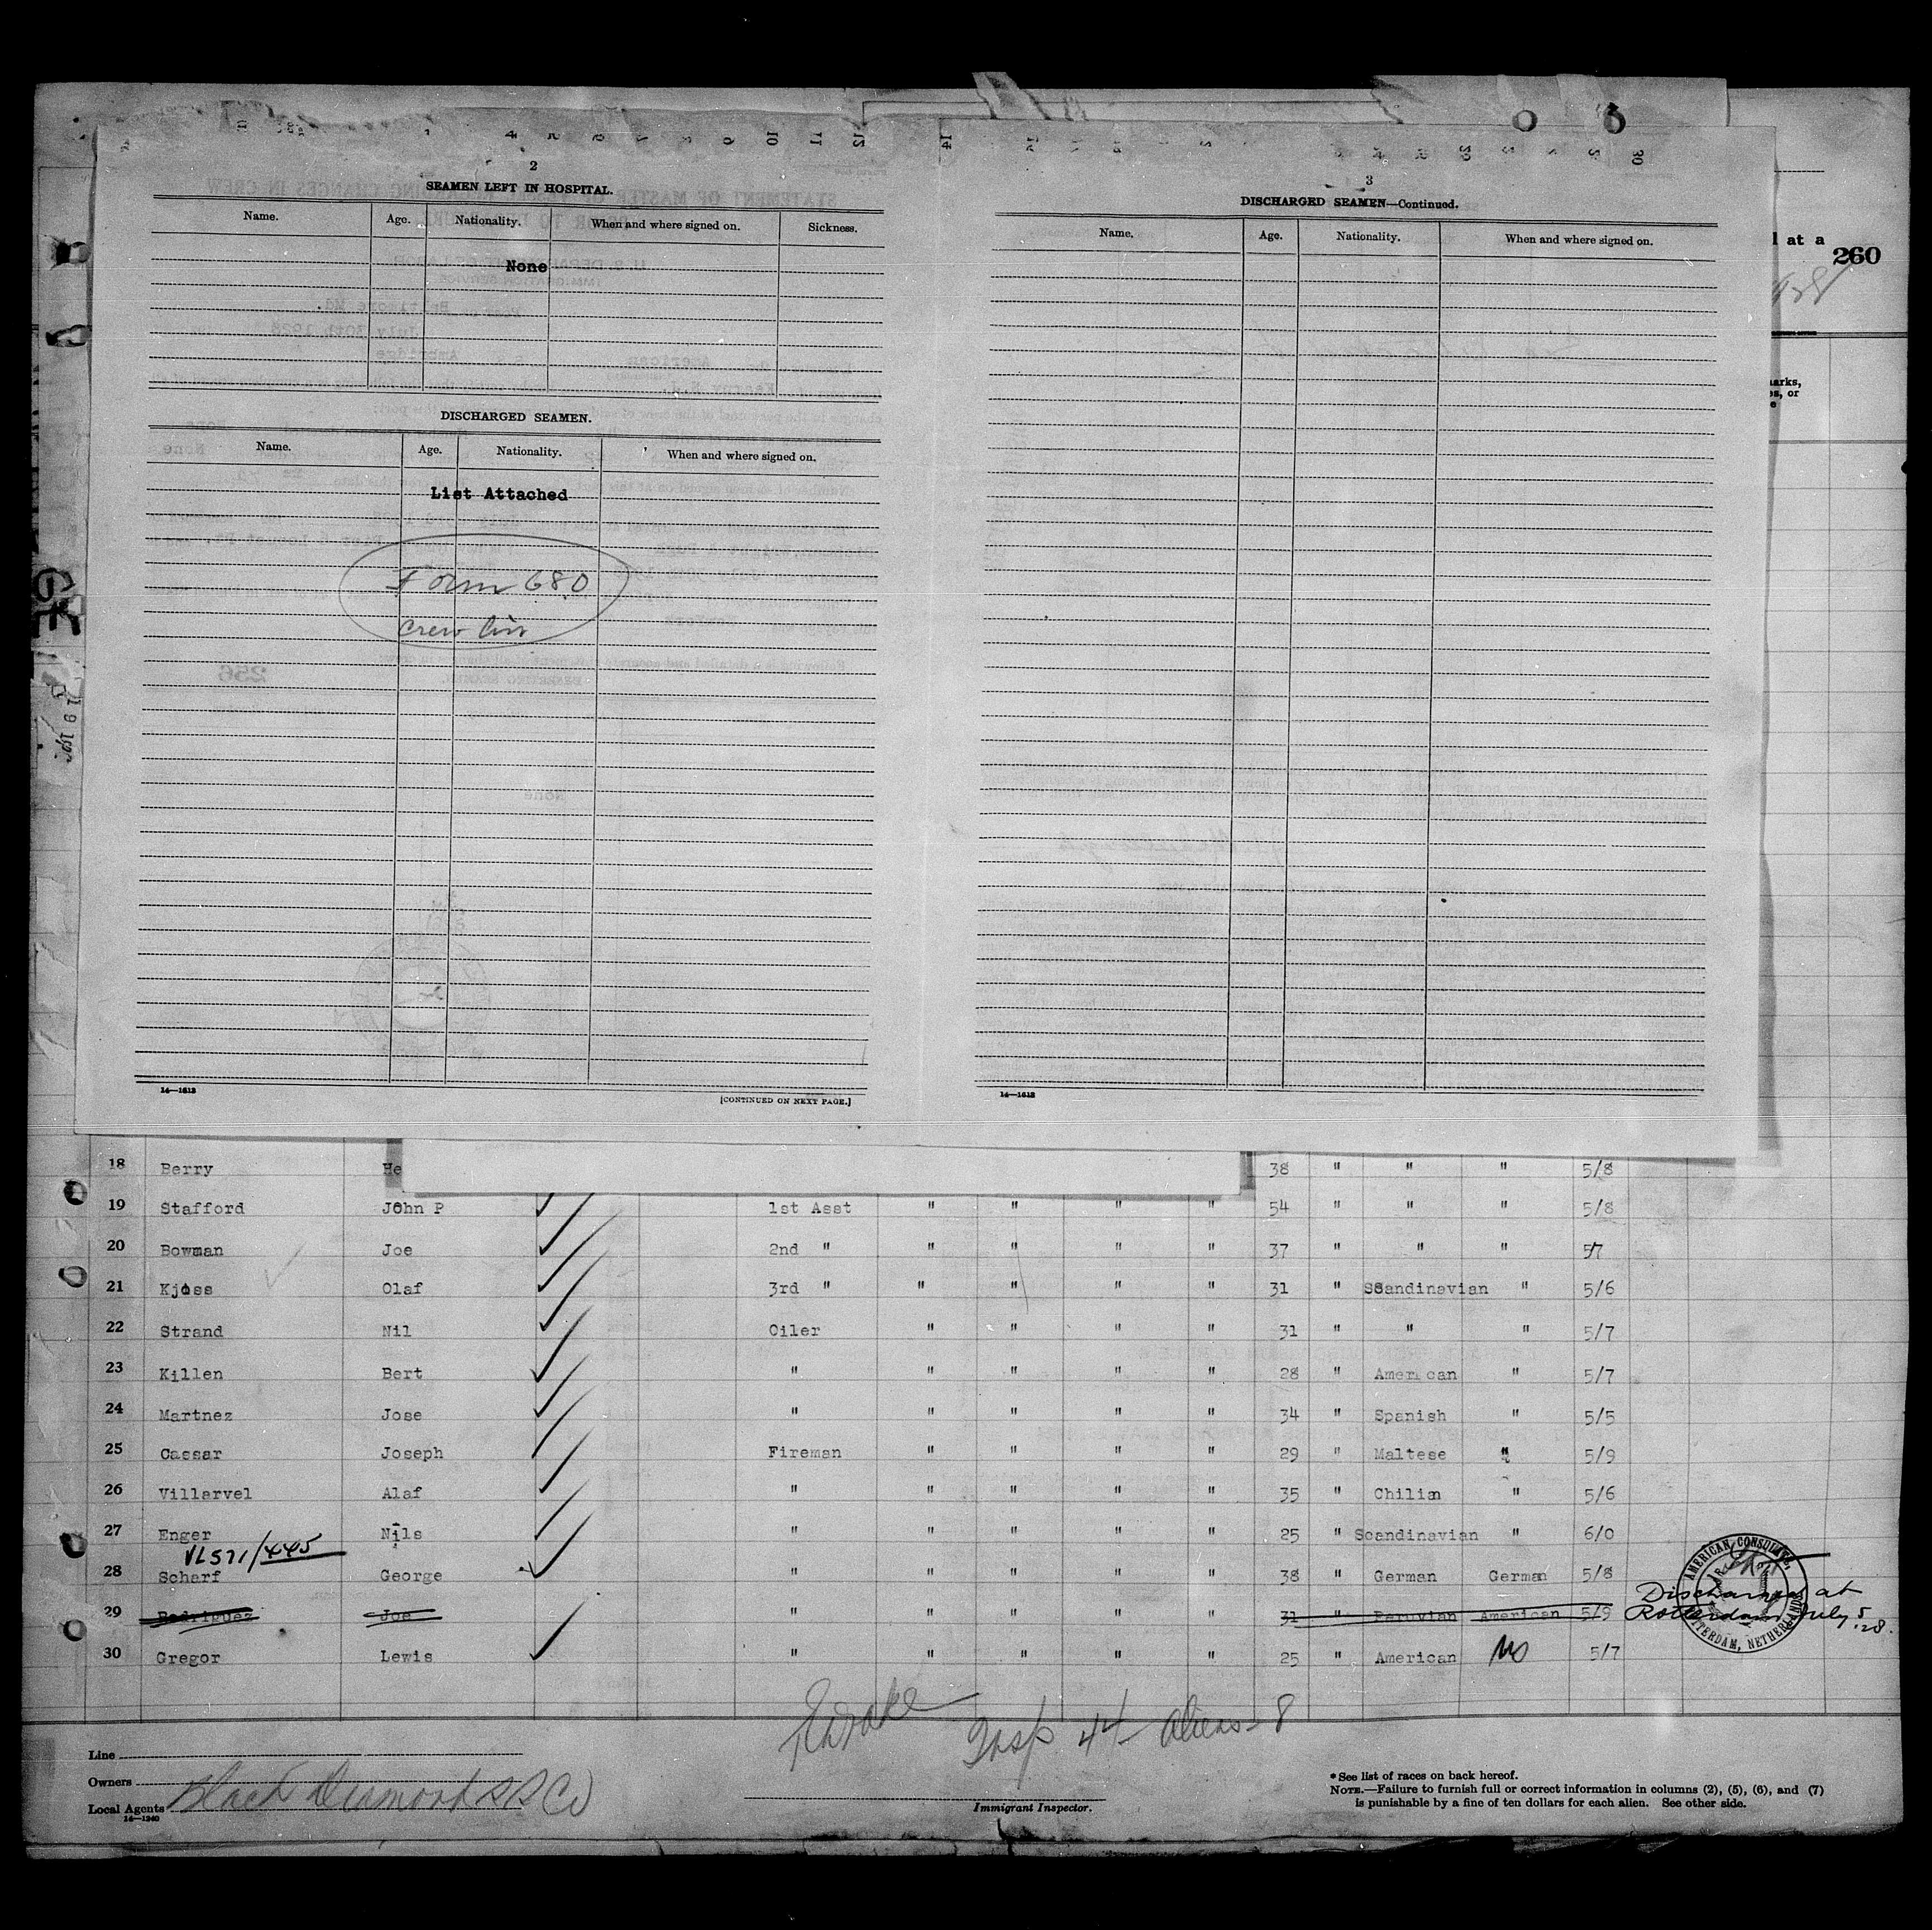 2
SEAMEN LEFT IN HOSPITAL.
Name. Age. Nationality. When and where signed on. Sickness.
None
DISCHARGED SEAMEN.
Name. Age. Nationality. When and where signed on.
List Attached
Form 680
crew list
14—1613
[CONTINUED ON NEXT PAGE.]
3
DISCHARGED SEAMEN—Continued.
Name. Age. Nationality. When and where signed on.
14—1613
at a
260
18 Berry He 38 " " " 5/8
19 Stafford John P 1st Asst " " " " 54 " " " 5/8
20 Bowman Joe 2nd " " " " " 37 " " " 57
21 Kjoss Olaf 3rd " " " " " 31 " SSandinavian " 5/6
22 Strand Nil Oiler " " " " 31 " " " 5/7
23 Killen Bert " " " " " 28 " American " 5/7
24 Martnez Jose " " " " " 34 " Spanish " 5/5
25 Cassar Joseph Fireman " " " " 29 " Maltese " 5/9
26 Villarvel Alaf " " " " " 35 " Chilian " 5/6
27 Enger Nils " " " " " 25 " Scandinavian " 6/0
VL571/445
28 Scharf George " " " " " 38 " German German 5/8
29 Rodriguez Joe " " " " " 31 " Peruvian American 5/9
Discharged at
Rotterdam July 5
.28.
AMERICAN CONSULATE,
ROTTERDAM, NETHERLANDS
30 Gregor Lewis " " " " " 25 " American 5/7
Insp 44 Aliens - 8
Line
Owners
Local Agents Black Diamond SS Co
14—1240
Immigrant Inspector.
* See list of races on back hereof.
NOTE.—Failure to furnish full or correct information in columns (2), (5), (6), and (7)
is punishable by a fine of ten dollars for each alien. See other side.